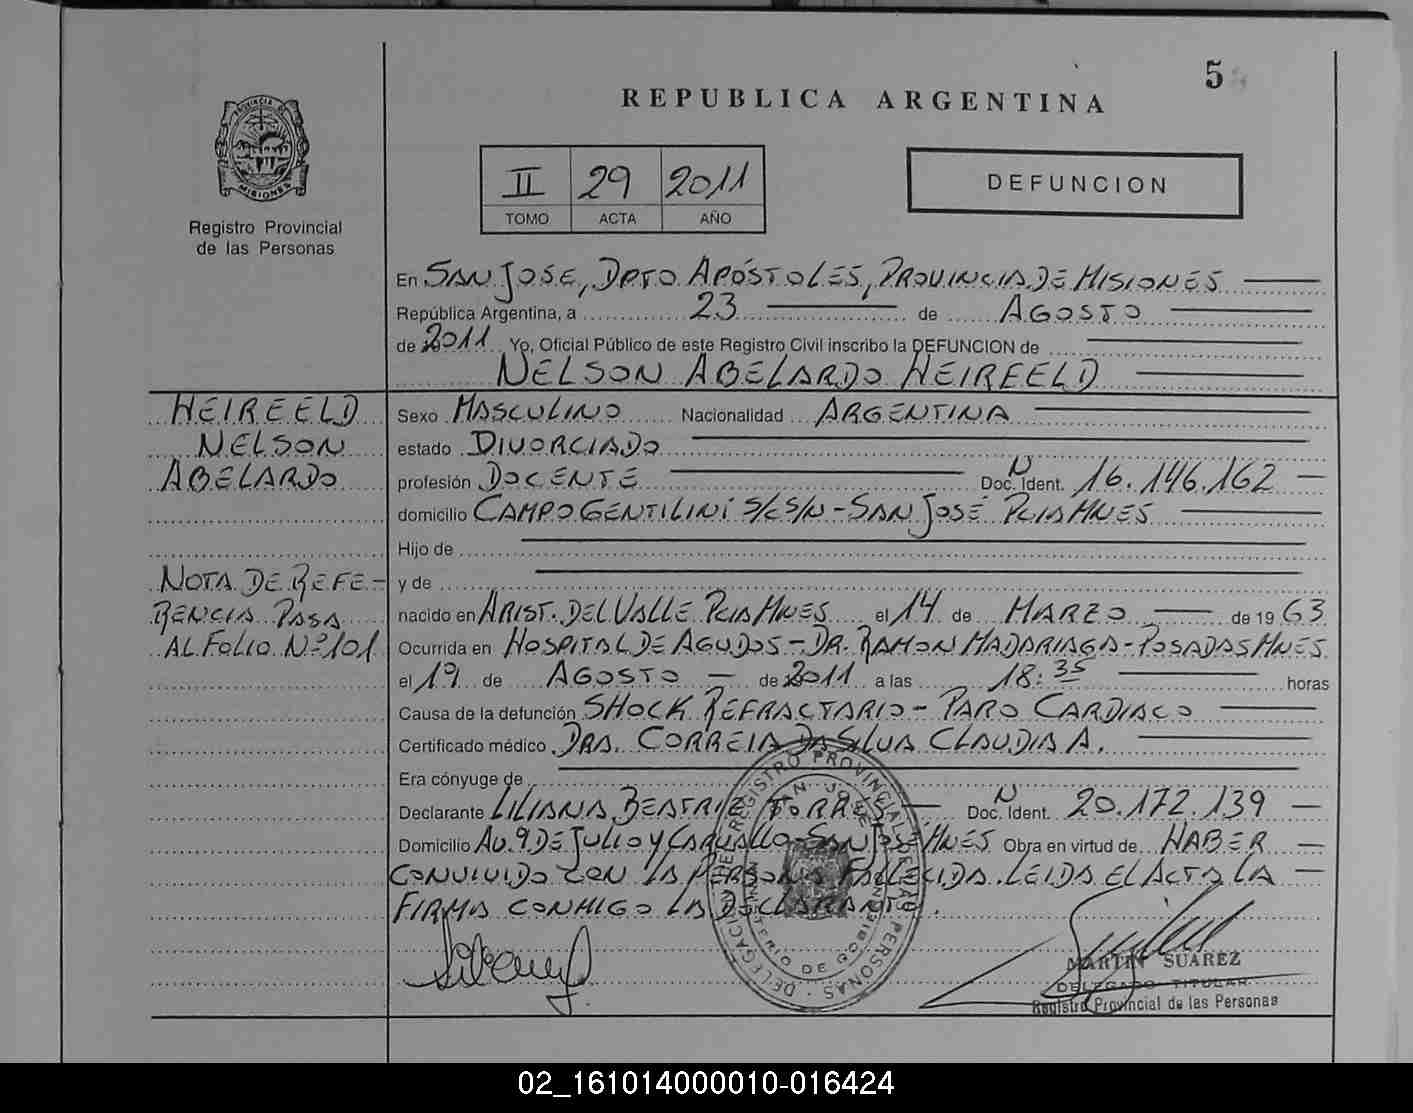 5
REPUBLICA ARGENTINA
PROVINCIA DE MISIONES
Registro Provincial
de las Personas
II 29 2011
TOMO ACTA AÑO
DEFUNCION
En SAN JOSE, DPTO APÓSTOLES, PROVINCIA DE MISIONES
República Argentina, a 23 de AGOSTO
de 2011 Yo, Oficial Público de este Registro Civil inscribo la DEFUNCION de
NELSON ABELARDO HEIREELD
HEIREELD
NELSON
ABELARDO
NOTA DE REFE-
RENCIA PASA
AL FOLIO Nº 101
Sexo MASCULINO Nacionalidad ARGENTINA
estado DIVORCIADO
profesión DOCENTE Doc. N Ident. 16.146.162
domicilio CAMPO GENTILINI S/C S/N - SAN JOSÉ PCIA MNES
Hijo de
y de
nacido en ARIST. DEL VALLE PCIA MNES el 14 de MARZO de 1963
Ocurrida en HOSPITAL DE AGUDOS - DR. RAMON MADARIAGA - POSADAS MNES
el 19 de AGOSTO de 2011 a las 18:35 horas
Causa de la defunción SHOCK REFRACTARIO - PARO CARDIACO
Certificado médico DRA. CORREIA DA SILVA CLAUDIA A.
Era cónyuge de
Declarante LILIANA BEATRIZ TORRES Doc. N Ident. 20.172.139
Domicilio AV. 9 DE JULIO Y CARVALLO - SAN JOSÉ MNES Obra en virtud de HABER
CONVIVIDO CON LA PERSONA FALLECIDA. LEIDA EL ACTA LA
FIRMA CONMIGO LA DECLARANTE.
DELEGACION REGISTRO PROVINCIAL DE LAS PERSONAS
SAN JOSE
MINISTERIO DE GOBIERNO
MARTIN SUAREZ
DELEGADO TITULAR
Registro Provincial de las Personas
02_161014000010-016424